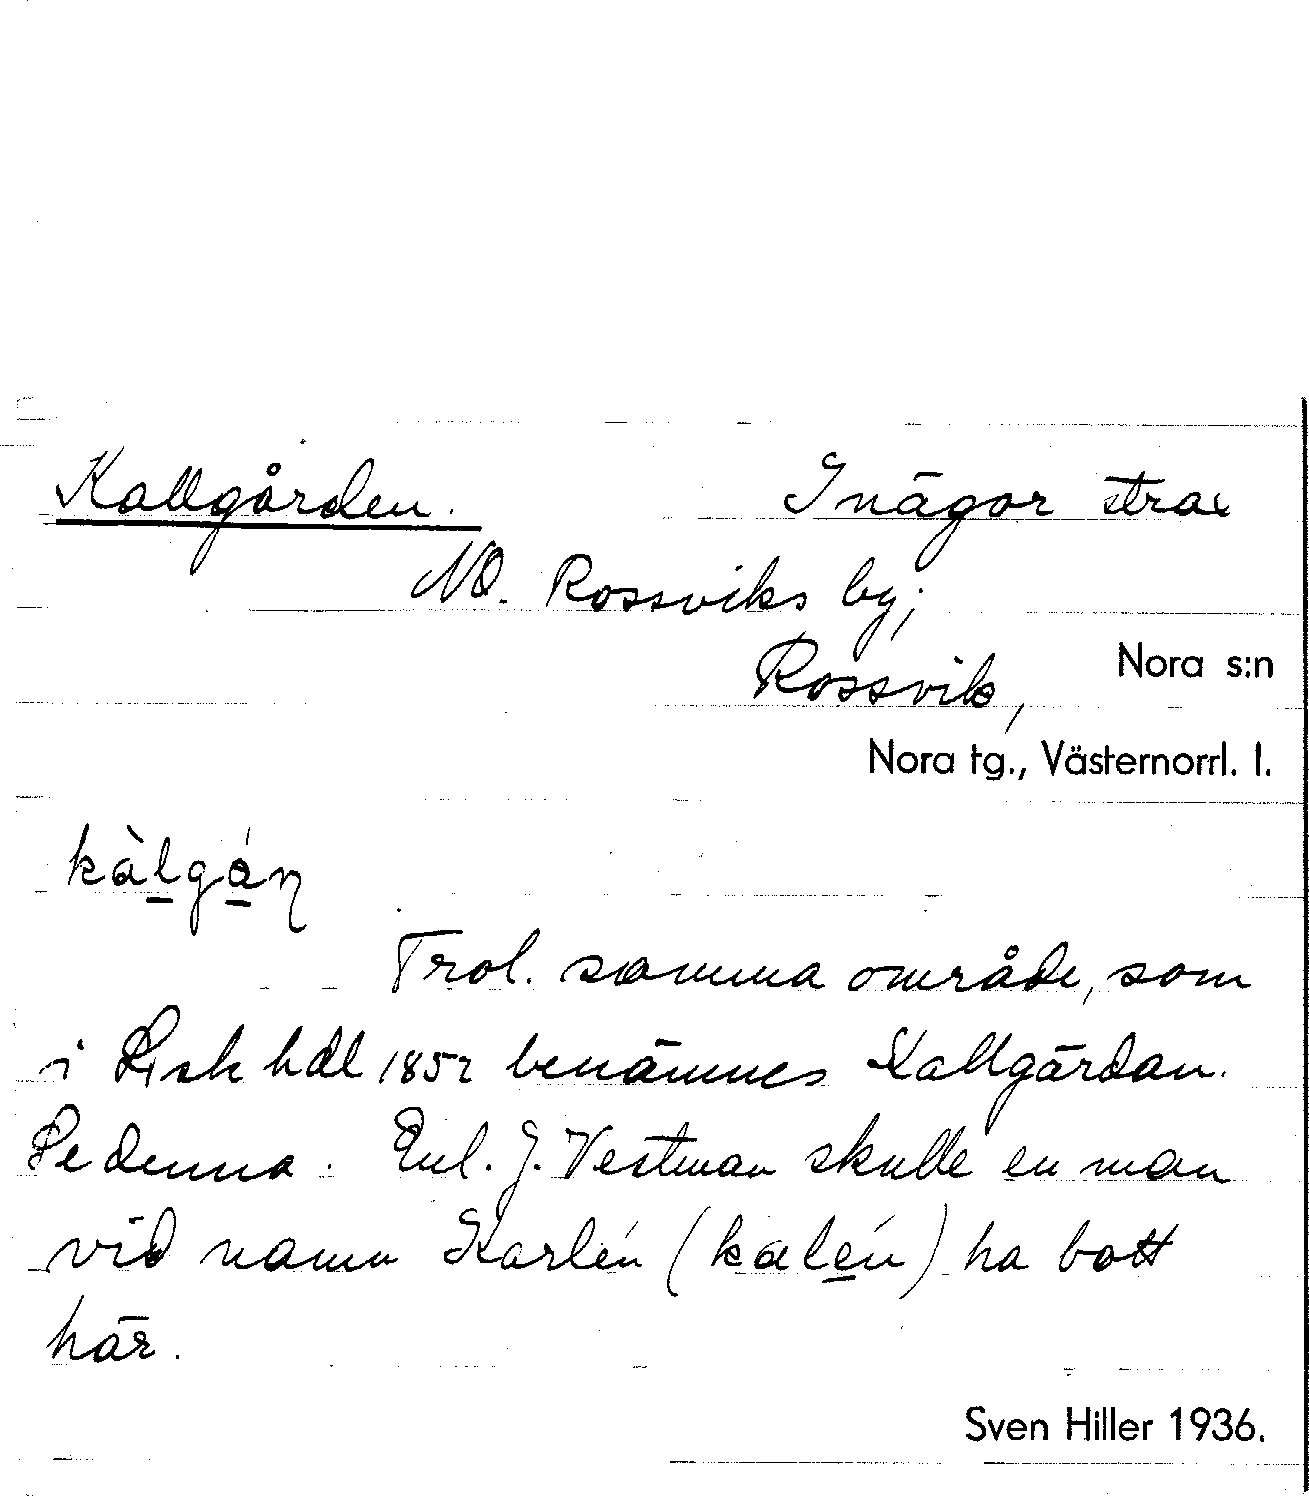 Kallgården. Inägor strax
NO. Rossviks by;
Rossvik, Nora s:n
Nora tg., Västernorrl. l.
kàlgán
Trol. samma område, som
i Lsk hdl 1852 benämnes Kallgårdan.
Se denna. Enl. J. Vestman skulle en man
vid namn Karlén (kalén) ha bott
här.
Sven Hiller 1936.